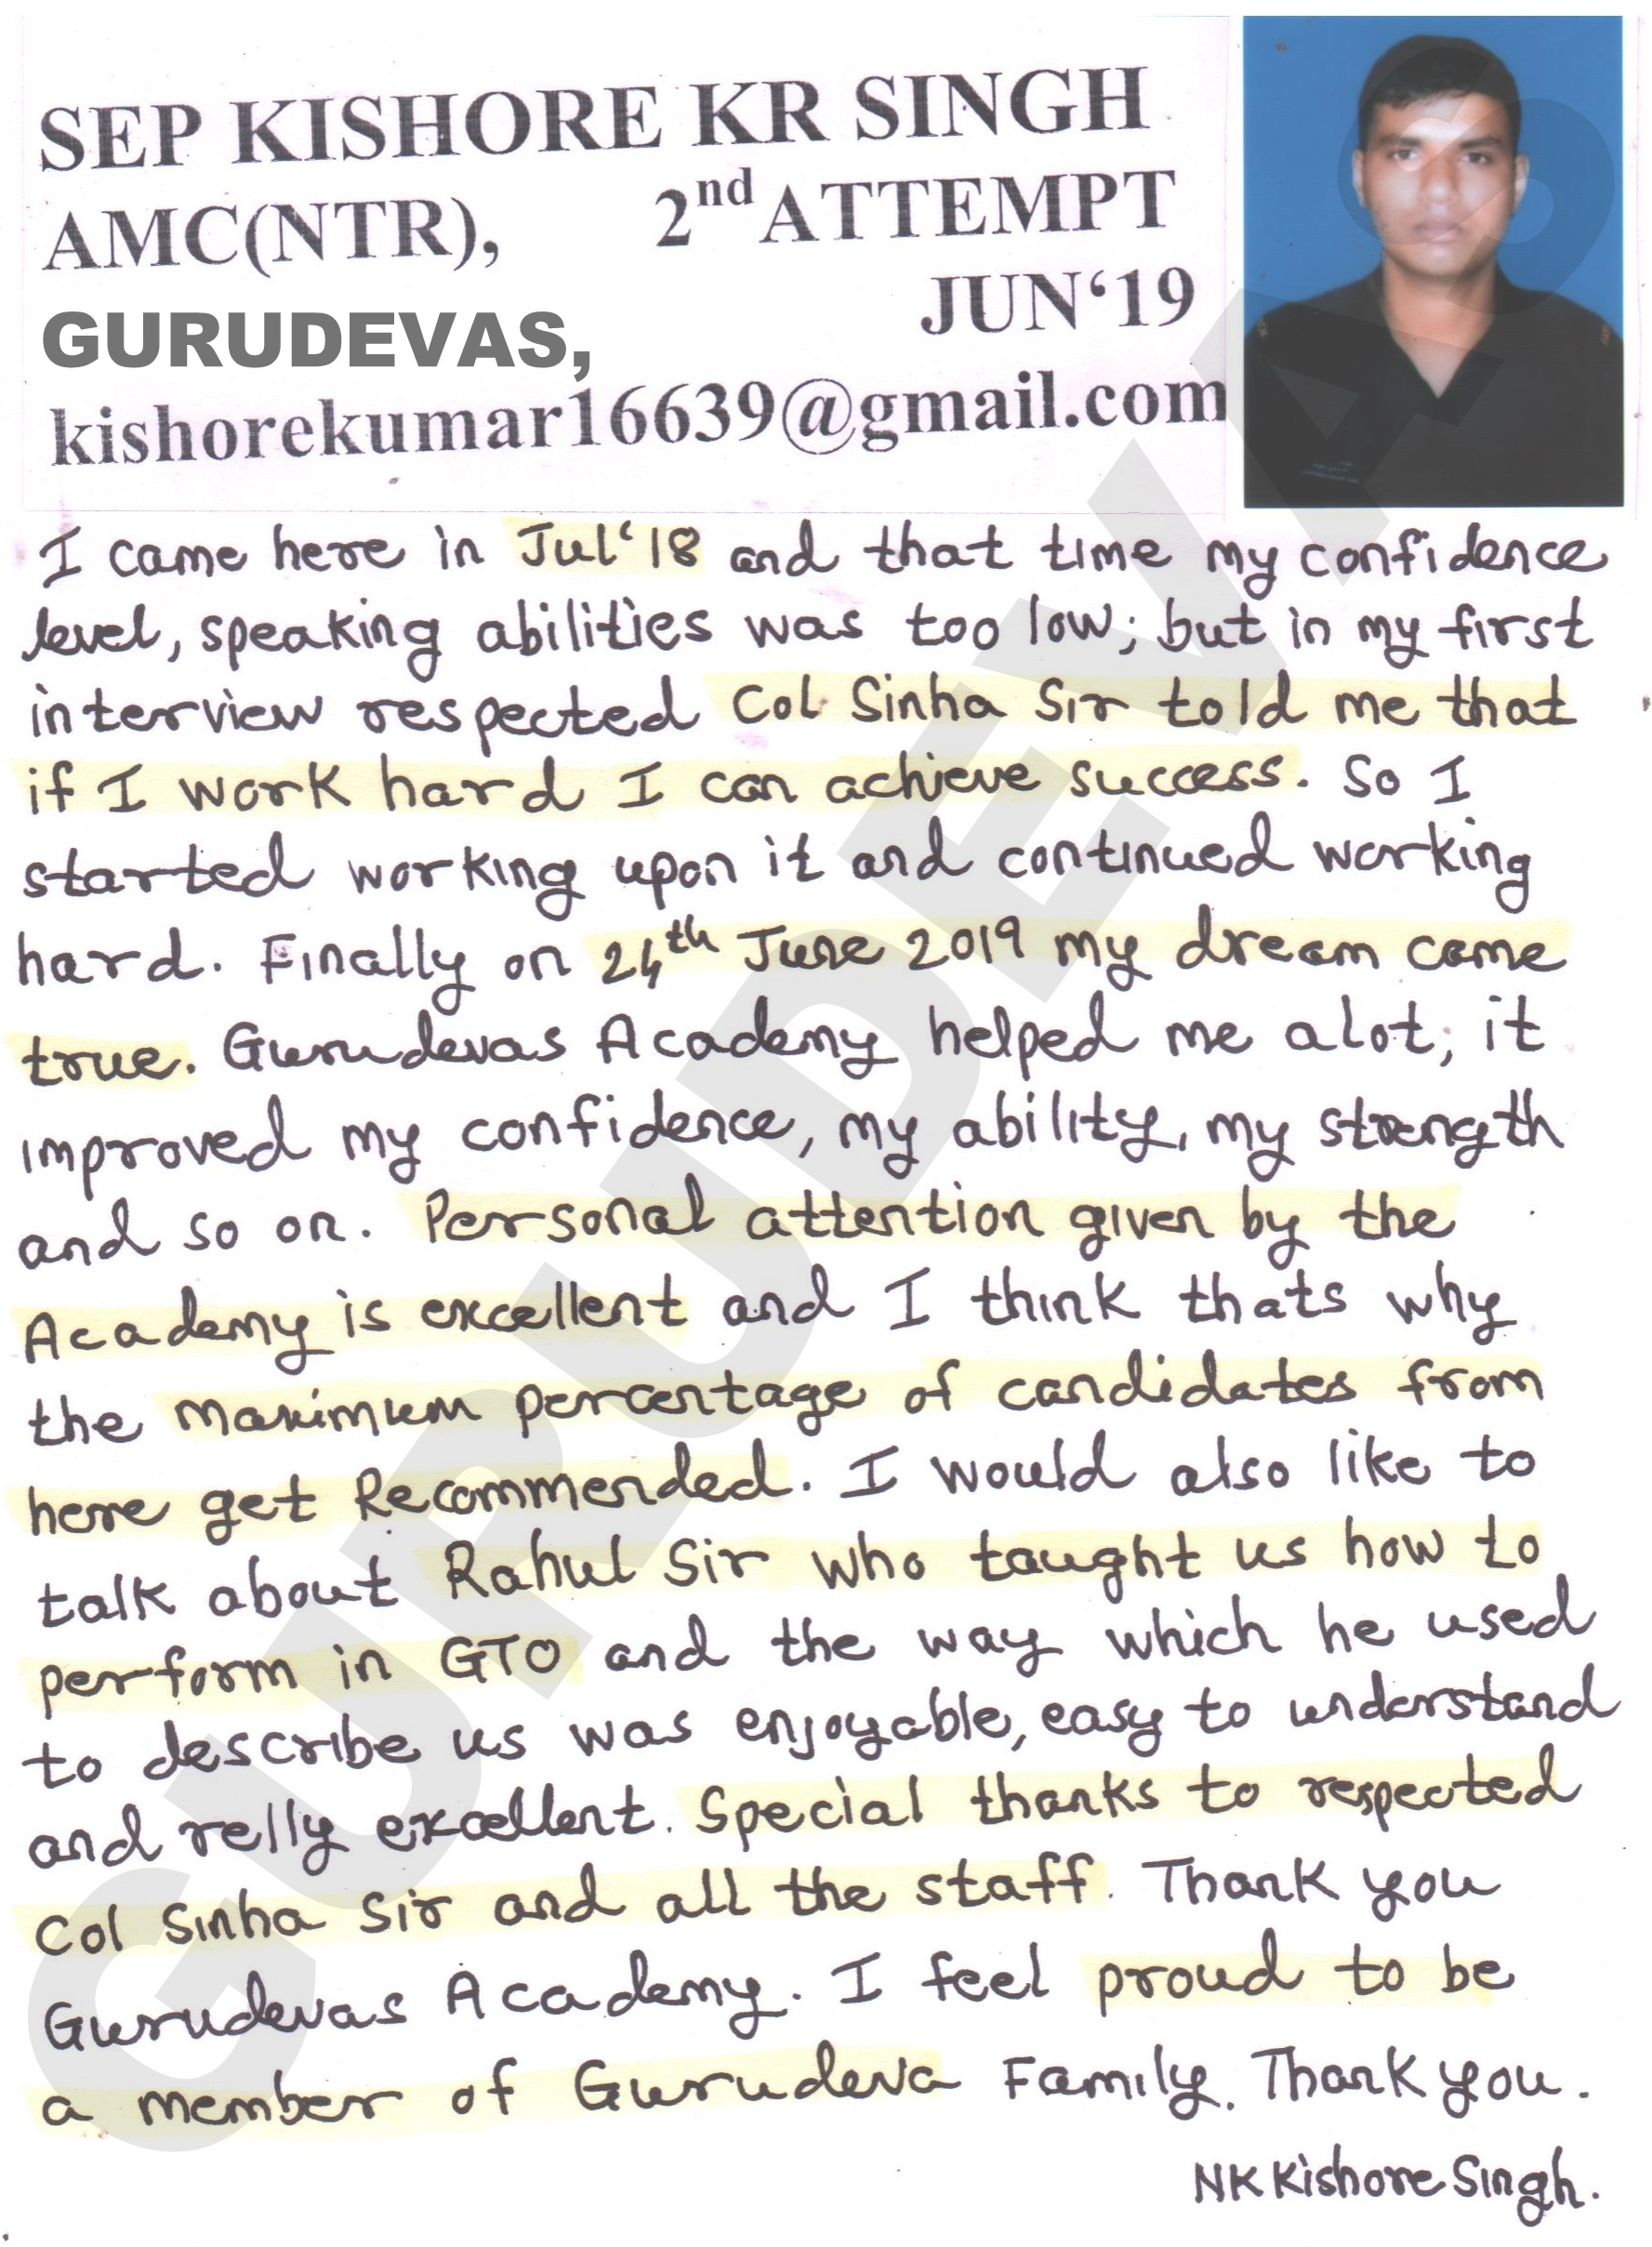 SEP KISHORE KR SINGH
AMC(NTR), 2nd ATTEMPT
JUN‘19
GURUDEVAS,
kishorekumar16639@gmail.com
I came here in Jul‘18 and that time my confidence
level, speaking abilities was too low; but in my first
interview respected Col Sinha Sir told me that
if I work hard I can achieve success. So I
started working upon it and continued working
hard. Finally on 24th June 2019 my dream came
true. Gurudevas Academy helped me alot; it
improved my confidence, my ability, my strength
and so on. Personal attention given by the
Academy is excellent and I think thats why
the maximum percentage of candidates from
here get Recommended. I would also like to
talk about Rahul Sir who taught us how to
perform in GTO and the way which he used
to describe us was enjoyable, easy to understand
and relly excellent. Special thanks to respected
Col Sinha Sir and all the staff. Thank you
Gurudevas Academy. I feel proud to be
a member of Gurudeva Family. Thank you.
NK Kishore Singh.
GURUDEVAS